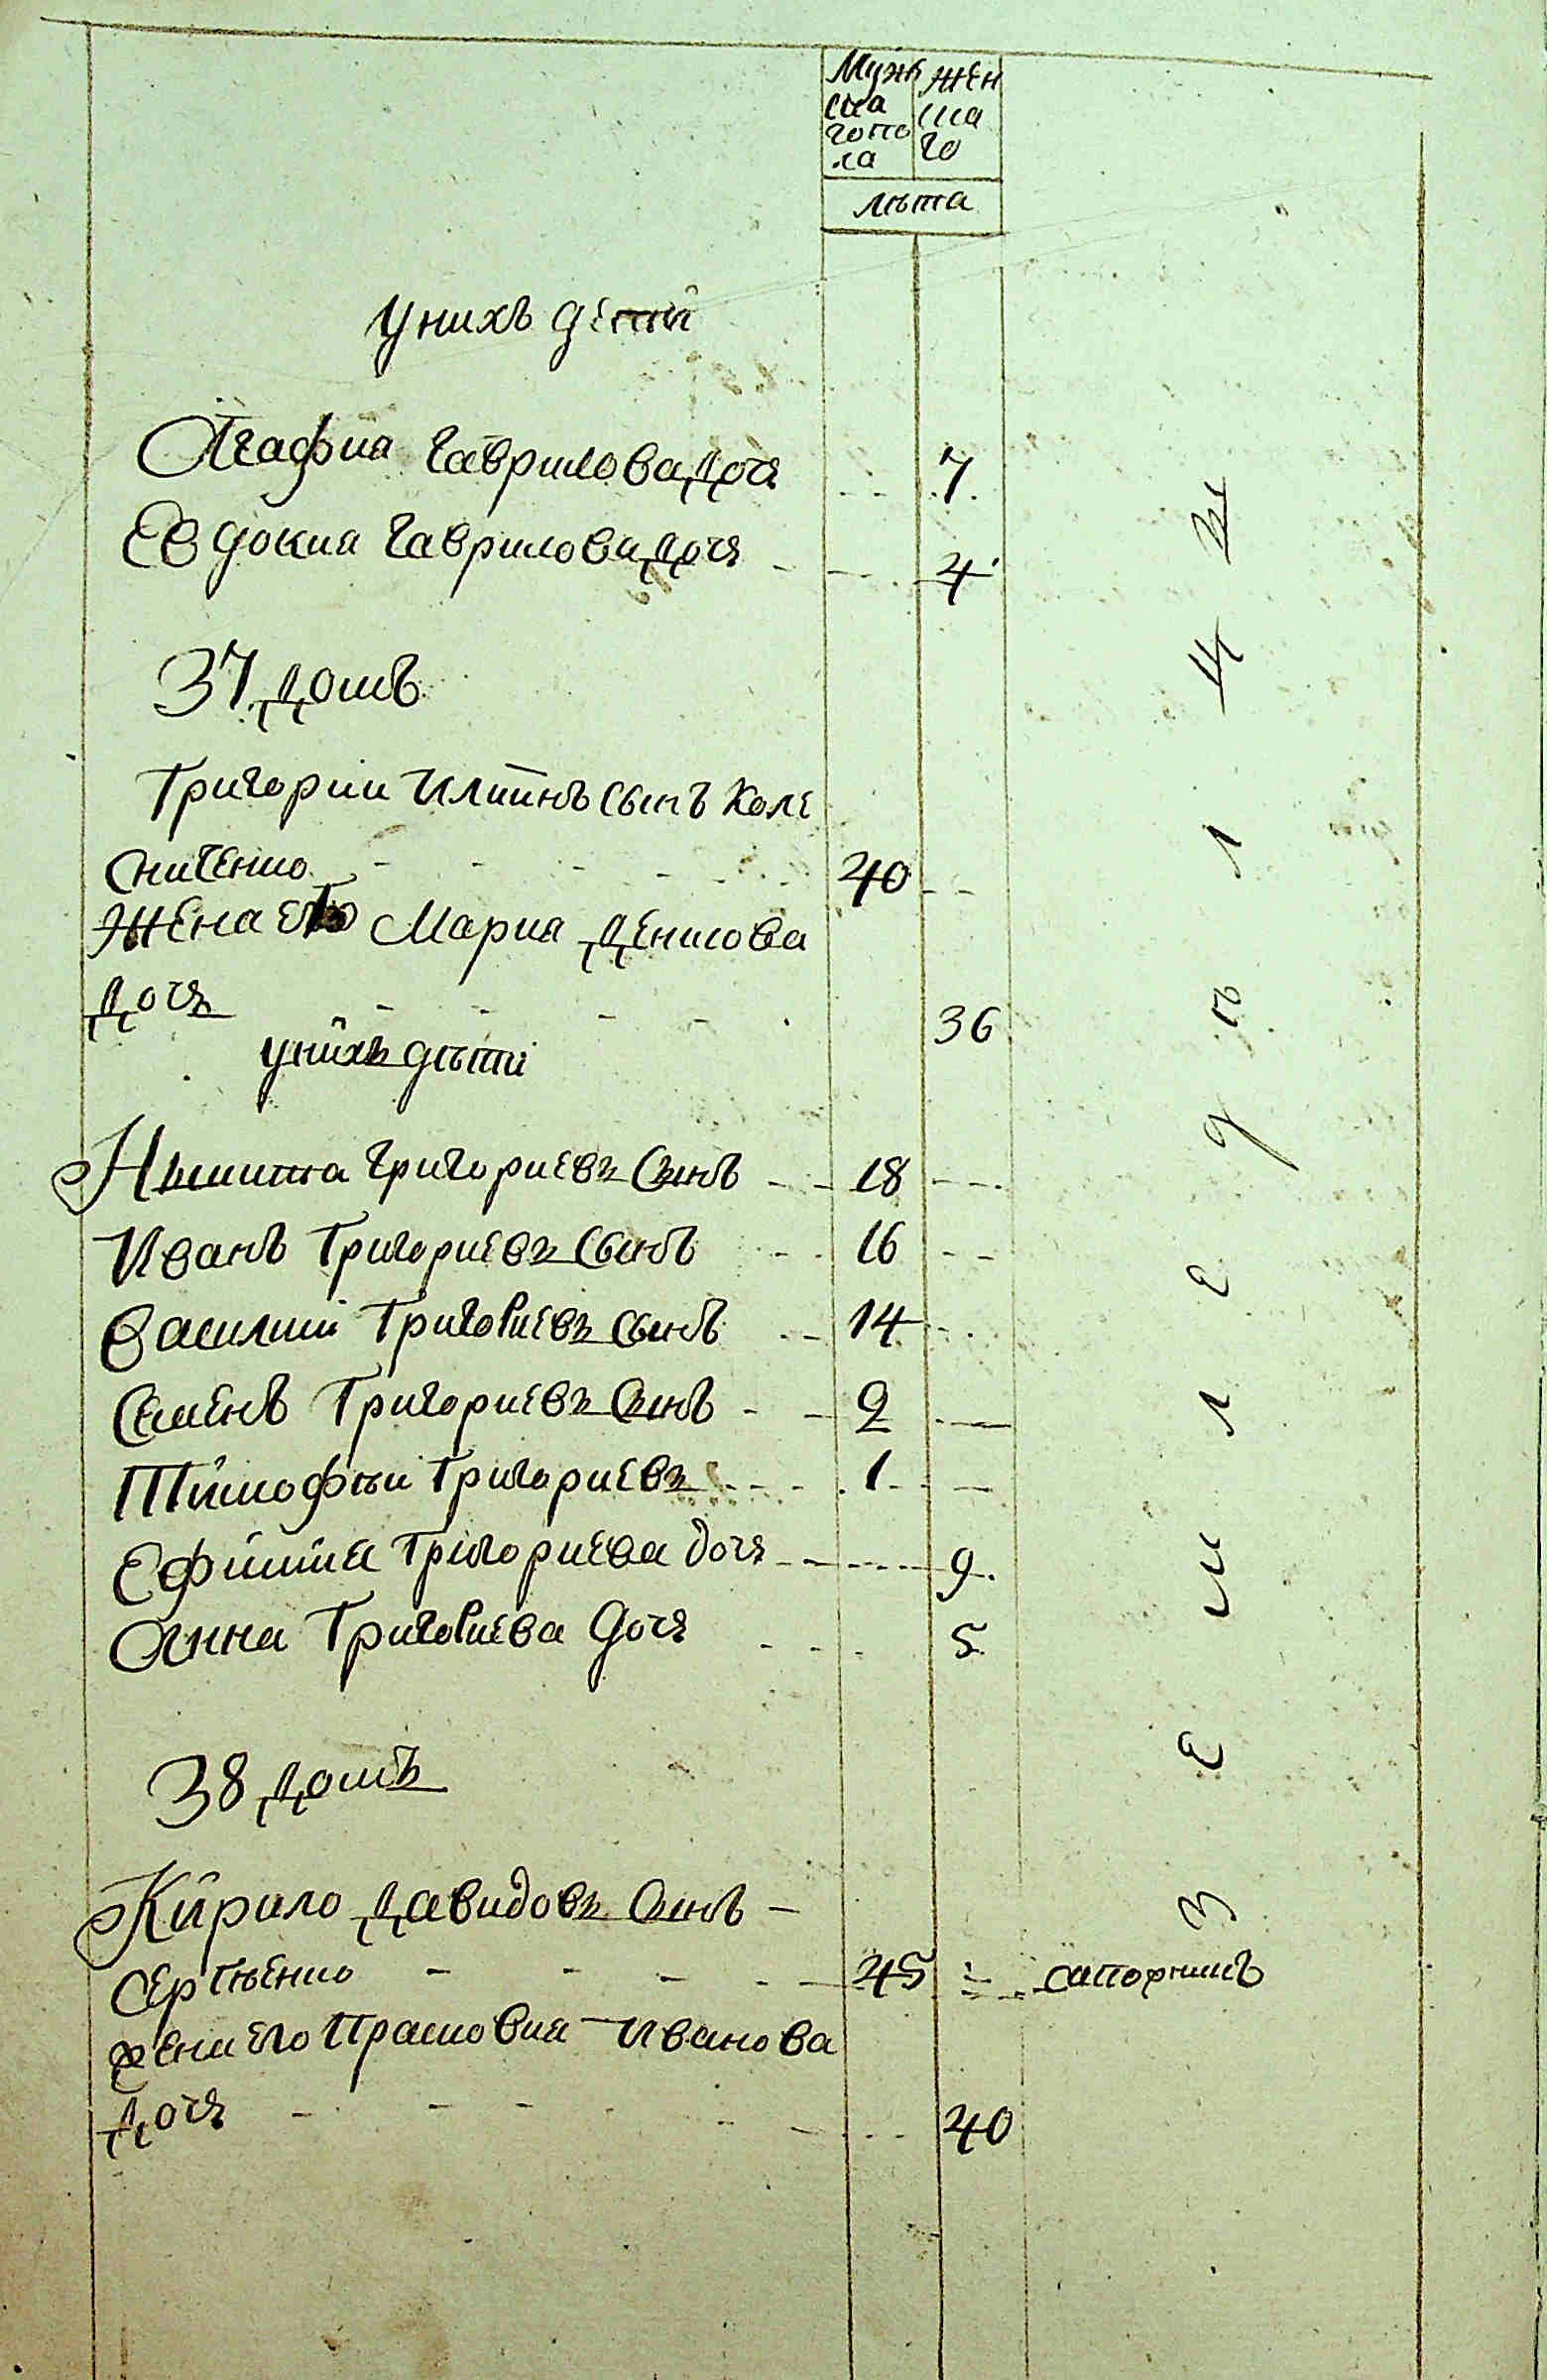 Мужс жен
ска ска
гопо го
ла
лѣта
унихъ дети
Агафиа Гаврилова дочь 7
Евдокиа Гаврилова дочь 4
37 домъ
Григории Илиинъ сынъ Коле
сниченко 40
жена его Мариа Денисова
дочь 36
унихъ дѣти
Никита Григориевъ сынъ 18
Иванъ Григориевъ сынъ 16
Василии Григориевъ сынъ 14
Семенъ Григориевъ сынъ 2
Тимофѣи Григориевъ 1
Ефимиа Григориева дочь 9
Анна Григориева дочь 5
38 домъ
Кирило Давидовъ сынъ
Сергѣенко 45
жена его Прасковиа Иванова
дочь 40
земледѣлцы